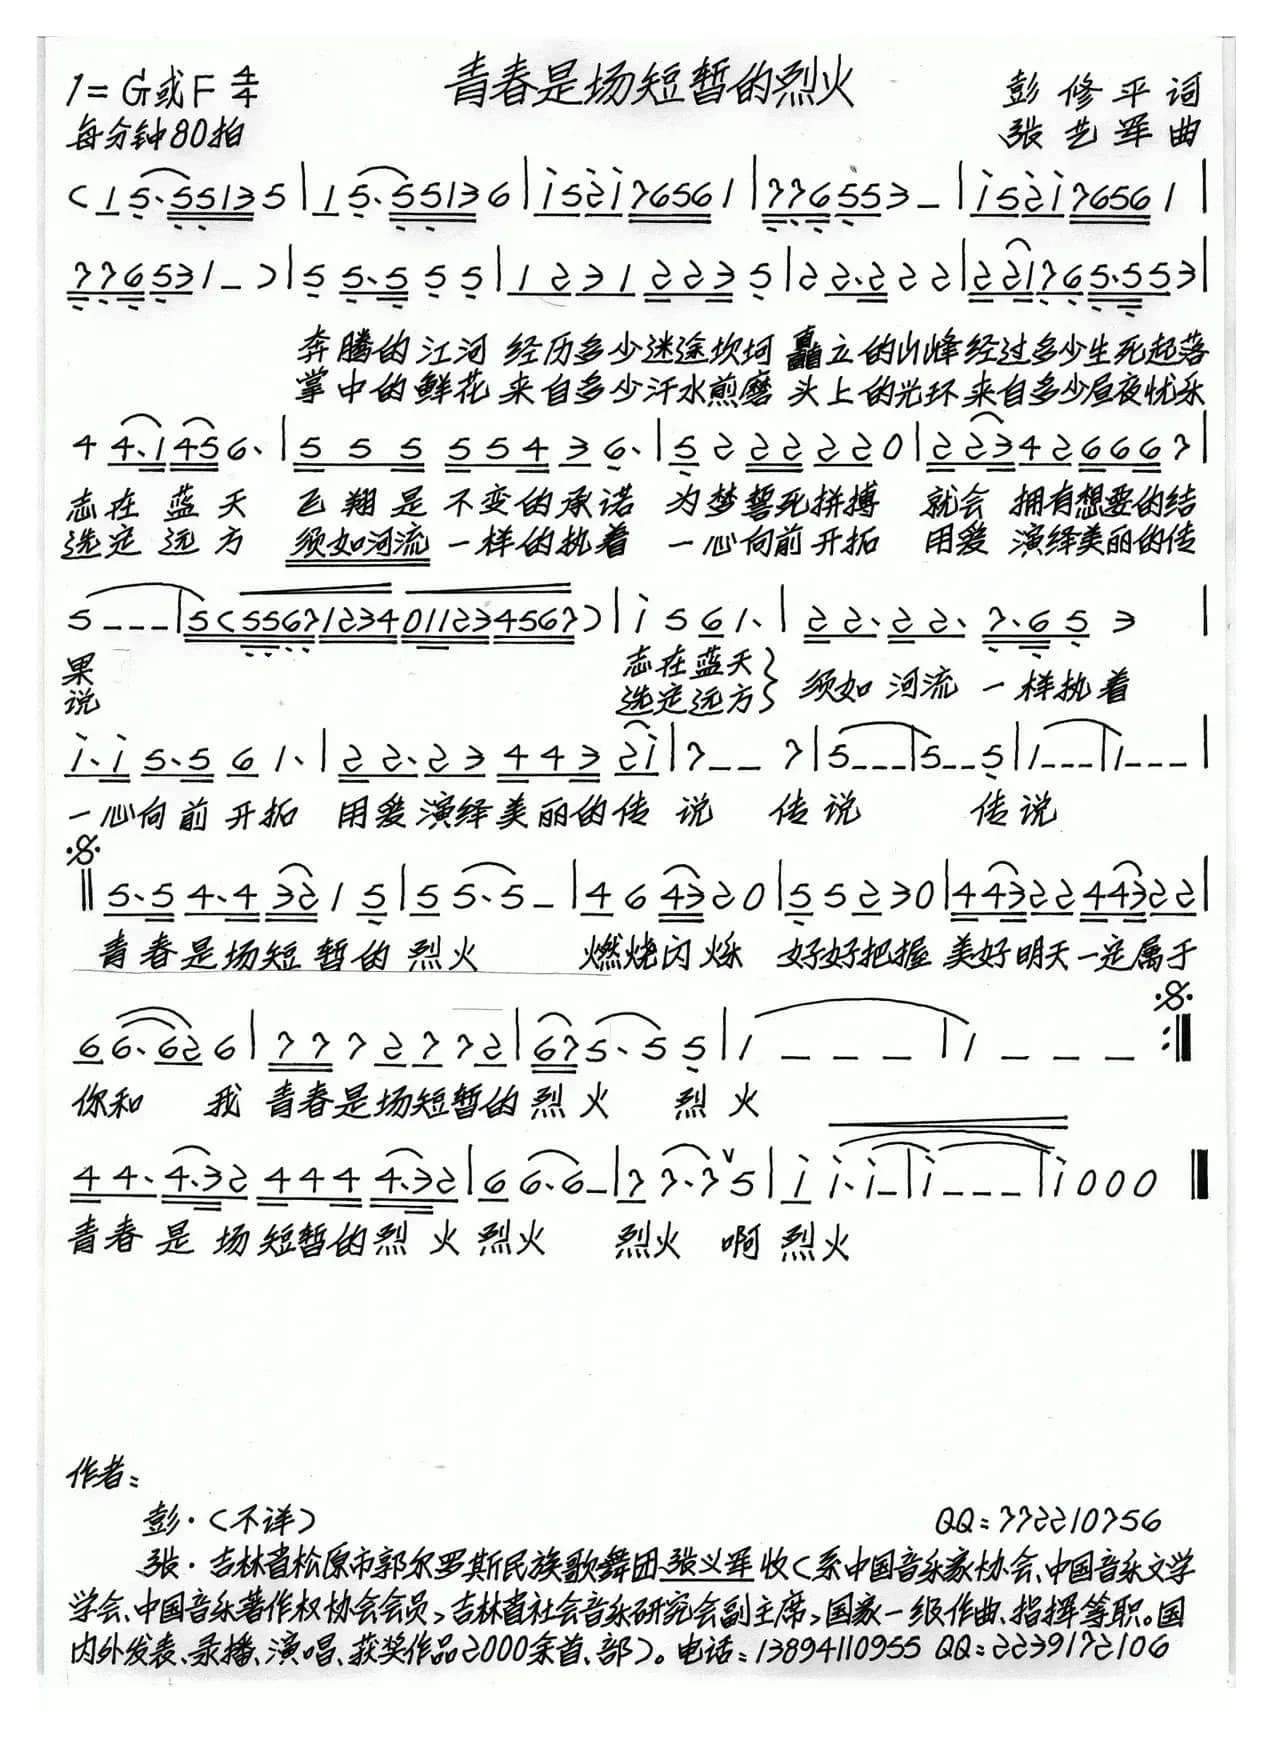 青春是场短暂的烈火
1=G或F 4/4
彭修平词
每分钟80拍
张艺军曲
(1 5·55135|1 5·55136|i52i76561|776553–|i52i76561|
776531–)|5 5·5 5 5|1 2 3 1 2 2 3 5|2 2·2 2 2|2217 6 5·553|
奔腾的江河 经历多少迷途坎坷 矗立的山峰经过多少生死起落
掌中的鲜花 来自多少汗水煎磨 头上的光环来自多少昼夜忧乐
4 4·1 45 6·|5 5 5 5 5 4 3 6·|5 2 2 2 2 2 0|2 2 3 4 2 6 6 6 7|
志在蓝天 飞翔是不变的承诺 为梦誓死拼搏 就会拥有想要的结
选定远方 须如河流一样的执着 一心向前开拓 用爱演绎美丽的传
5 – – –|5(5567123401123 4567)|i 5 6 1·|2 2·2 2·7·6 5 3|
果 志在蓝天} 须如河流一样执着
说 选定远方}
i·i 5·5 6 1·|2 2·2 3 4 4 3 2i|7 – – 7|5 – – –|5 – – 5|1 – – –|1 – – –|
一心向前开拓 用爱演绎美丽的传说 传说 传说
5·5 4·4 32 1 5|5 5·5 –|4 6 43 2 0|5 5 2 3 0|4 43 2 2 4 43 2 2|
青春是场短暂的烈火 燃烧闪烁 好好把握 美好明天一定属于
6 6·62 6|7 7 7 2 7 7 2|67 5·5 5|1 – – –|1 – – –:‖
你和 我 青春是场短暂的烈火 烈火
4 4·4·32 4 4 4 4·32|6 6·6–|7 7·7 ∨5|i i·i–|i – – –|i 0 0 0‖
青春是场短暂的烈火 烈火 烈火 啊 烈火
作者:
彭·(不详) QQ:772210756
张·吉林省松原市郭尔罗斯民族歌舞团·张义军收(系中国音乐家协会、中国音乐文学
学会、中国音乐著作权协会会员,吉林省社会音乐研究会副主席,国家一级作曲、指挥等职。国
内外发表、录播、演唱、获奖作品2000余首、部)。电话:13894110955 QQ:2239172106